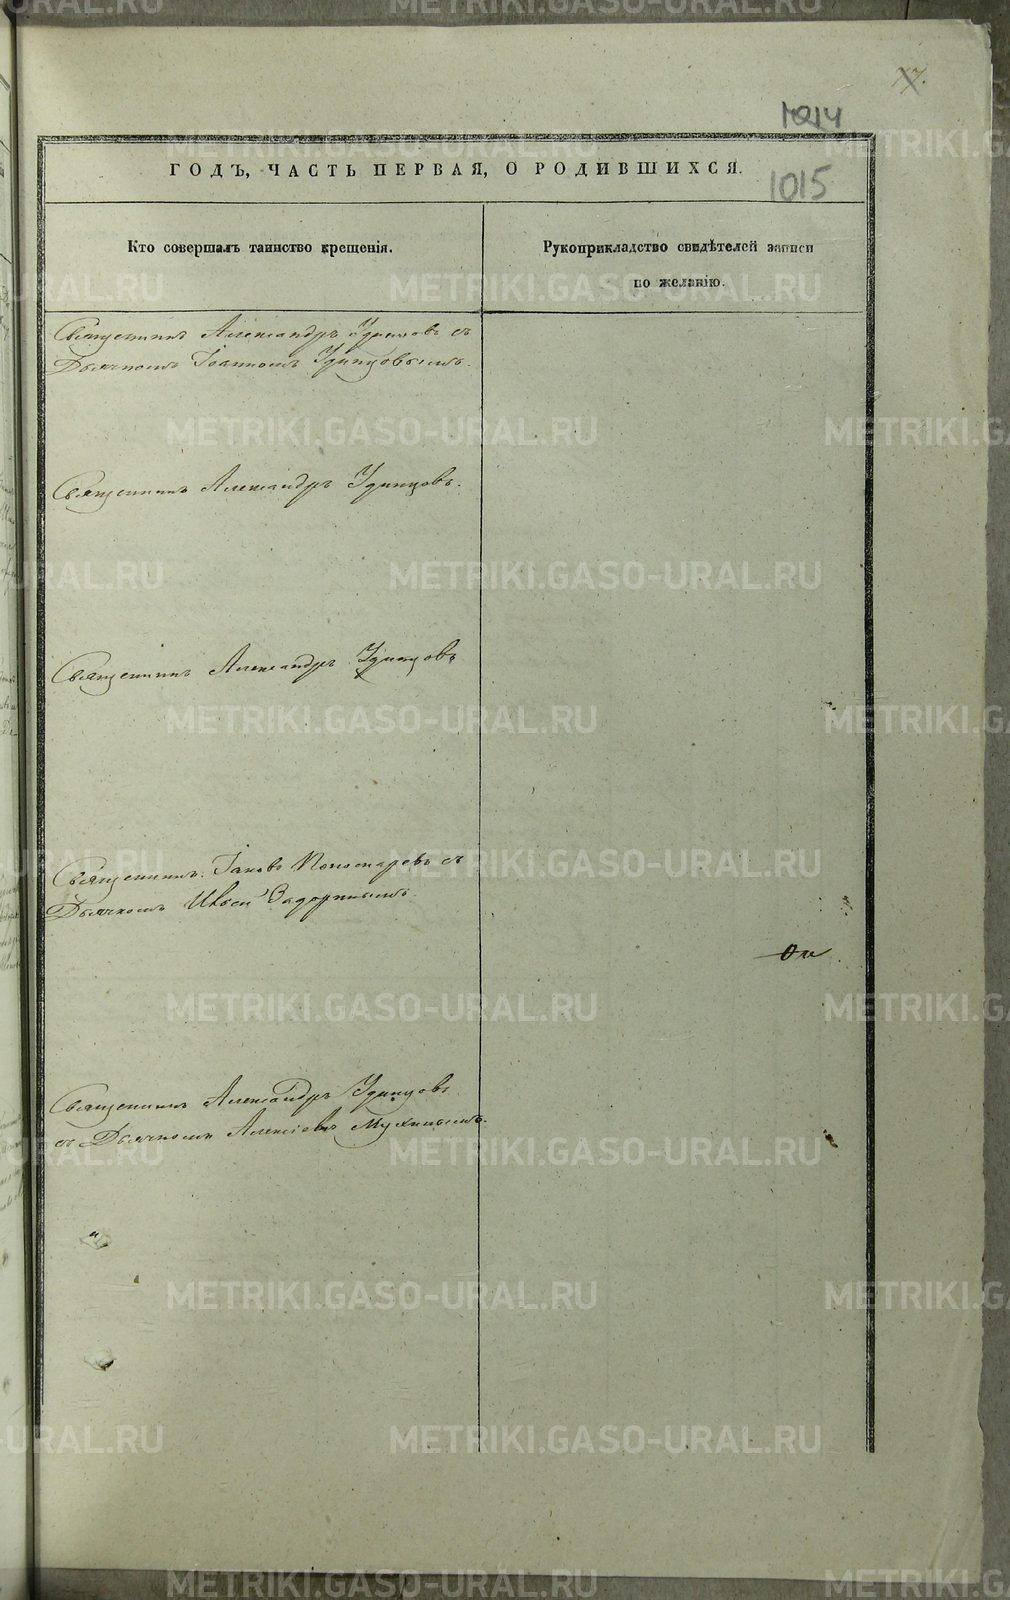 1014
ГОДЪ, ЧАСТЬ ПЕРВАЯ, О РОДИВШИХСЯ.
1015
Кто совершалъ таинство крещенія.
Рукоприкладство свидѣтелей записи
по желанію.
Священникъ Александръ Удинцовъ съ
Дьячкомъ Іоанномъ Удинцовымъ.
Священникъ Александръ Удинцовъ.
Священникъ Александръ Удинцовъ
Священникъ Іаковъ Пономаревъ съ
Дьячкомъ Задоринымъ.
Священникъ Александръ Удинцовъ
съ Дьячкомъ Мухинымъ.
METRIKI.GASO-URAL.RU